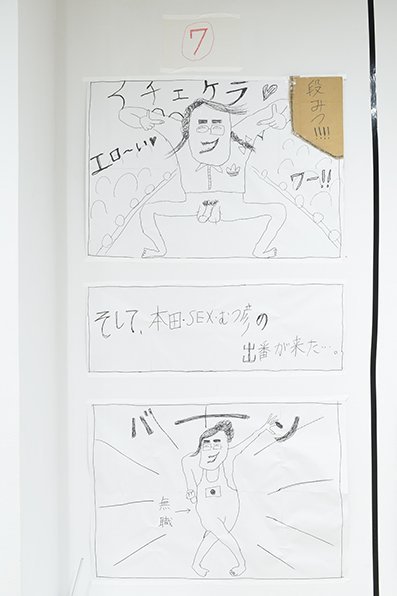 7
イチェケラ♡
段みつ!!!!
エロ〜い♥
ワー!!
そして、本田・SEX・むつ彦の
出番が来た…。
バーン
無職→